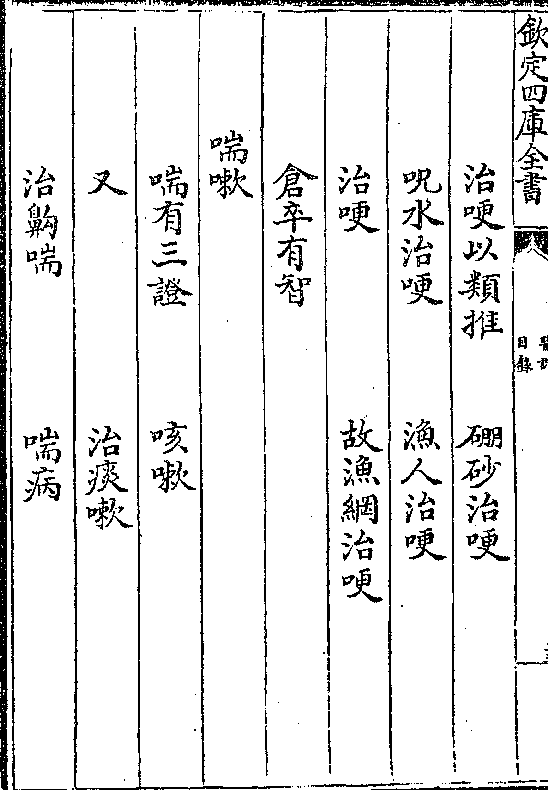 欽定四庫全書
目錄
治哽以類推 硼砂治哽
呪水治哽 漁人治哽
治哽 故漁網治哽
倉卒有智
喘嗽
喘有三證 咳嗽
又 治痰嗽
治齁喘 喘病